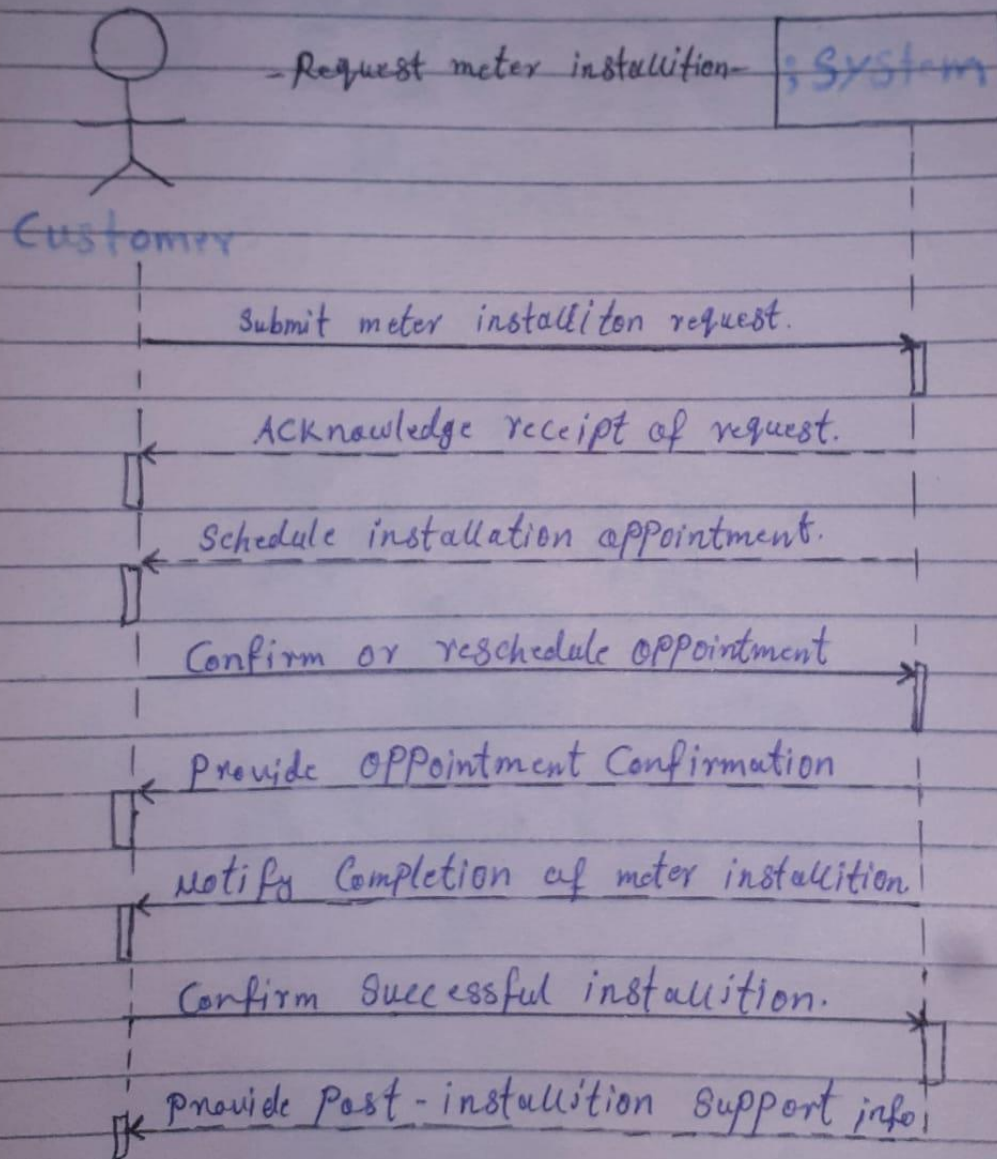 -Request meter installition-
;System
Customer
Submit meter installiton request.
Acknowledge receipt of request.
Schedule installation appointment.
Confirm or reschedule appointment
Provide appointment Confirmation
Notify Completion of meter installition.
Confirm Successful installition.
Provide Post-installition Support info